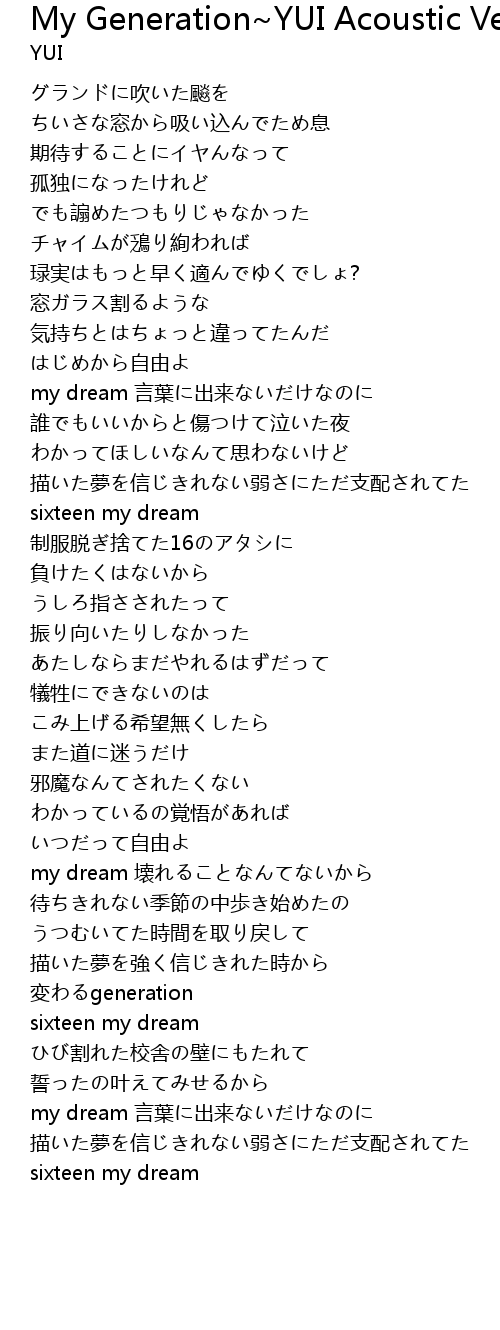 My Generation~YUI Acoustic Ve
YUI
グランドに吹いた
ちいさな窓から吸い込んでため息
期待することにイヤんなって
孤独になったけれど
でも めたつもりじゃなかった
チャイムが り絢われば
実はもっと早く適んでゆくでしょ?
窓ガラス割るような
気持ちとはちょっと違ってたんだ
はじめから自由よ
my dream 言葉に出来ないだけなのに
誰でもいいからと傷つけて泣いた夜
わかってほしいなんて思わないけど
描いた夢を信じきれない弱さにただ支配されてた
sixteen my dream
制服脱ぎ捨てた16のアタシに
負けたくはないから
うしろ指さされたって
振り向いたりしなかった
あたしならまだやれるはずだって
犠牲にできないのは
こみ上げる希望無くしたら
また道に迷うだけ
邪魔なんてされたくない
わかっているの覚悟があれば
いつだって自由よ
my dream 壊れることなんてないから
待ちきれない季節の中歩き始めたの
うつむいてた時間を取り戻して
描いた夢を強く信じきれた時から
変わるgeneration
sixteen my dream
ひび割れた校舎の壁にもたれて
誓ったの叶えてみせるから
my dream 言葉に出来ないだけなのに
描いた夢を信じきれない弱さにただ支配されてた
sixteen my dream